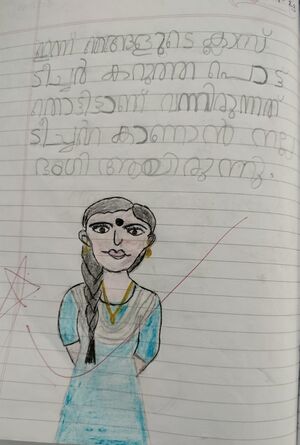 ഇന്ന് ഞങ്ങളുടെ ക്ലാസ്
ടീച്ചർ കറുത്ത പൊട്ട
തൊട്ടിട്ടാണ് വന്നിരുന്നത്
ടീച്ചറെ കാണാൻ നല്ല
ഭംഗി ആയിരുന്നു.